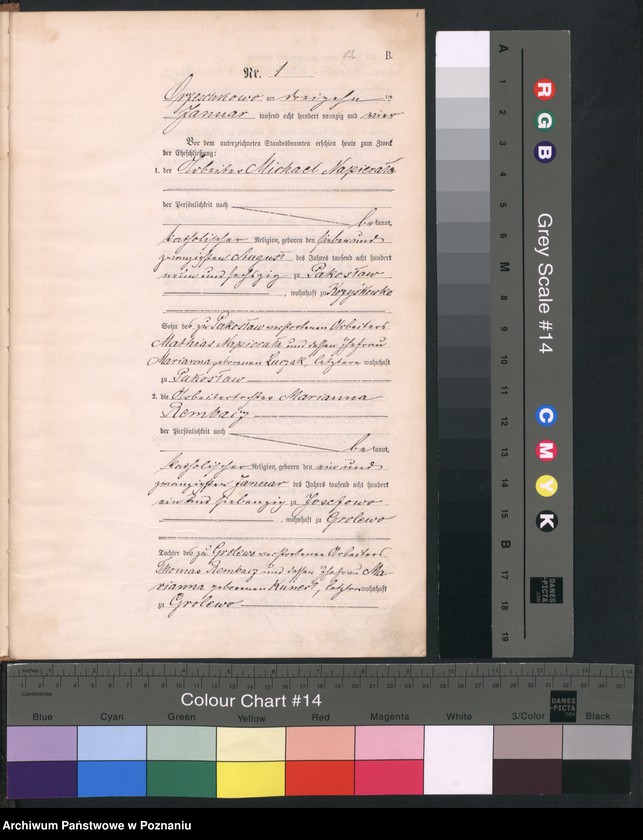 B.
Nr. 1
Orzeschkowo am dreizehn ten
Januar tausend acht hundert neunzig und vier
Vor dem unterzeichneten Standesbeamten erschien heute zum Zweck
der Eheschließung:
1. der Arbeiter Michael Napierała
der Persönlichkeit nach
be kannt,
katholischer Religion, geboren den sieben und
zwanzigsten August des Jahres tausend acht hundert
neun und sechszig zu Pakosław
, wohnhaft zu
Sohn des zu Pakosław verstorbenen Arbeiters
Mathias Napierała und dessen Ehefrau
Marianna geborenen Luczak, letztere wohnhaft
zu Pakosław
2. die Arbeitertochter Marianna
Rembacz
der Persönlichkeit nach
be kannt,
katholischer Religion, geboren den ein und
zwanzigsten Januar des Jahres tausend acht hundert
ein und siebenzig zu Josefowo
, wohnhaft zu Grolewo
Tochter des zu Grolewo verstorbenen Arbeiters
Thomas Rembacz und dessen Ehefrau Ma-
rianna geborenen Kunert, letztere wohnhaft
zu Grolewo
A 1 2 3 4 5 6 M 8 9 10 11 12 13 14 15 B 17 18 19
R G B
Grey Scale #14
C M Y K
DANES-PICTA.COM
Inches
Centimetres
Colour Chart #14
DANES-PICTA.COM
Blue Cyan Green Yellow Red Magenta White 3/Color Black
Archiwum Państwowe w Poznaniu